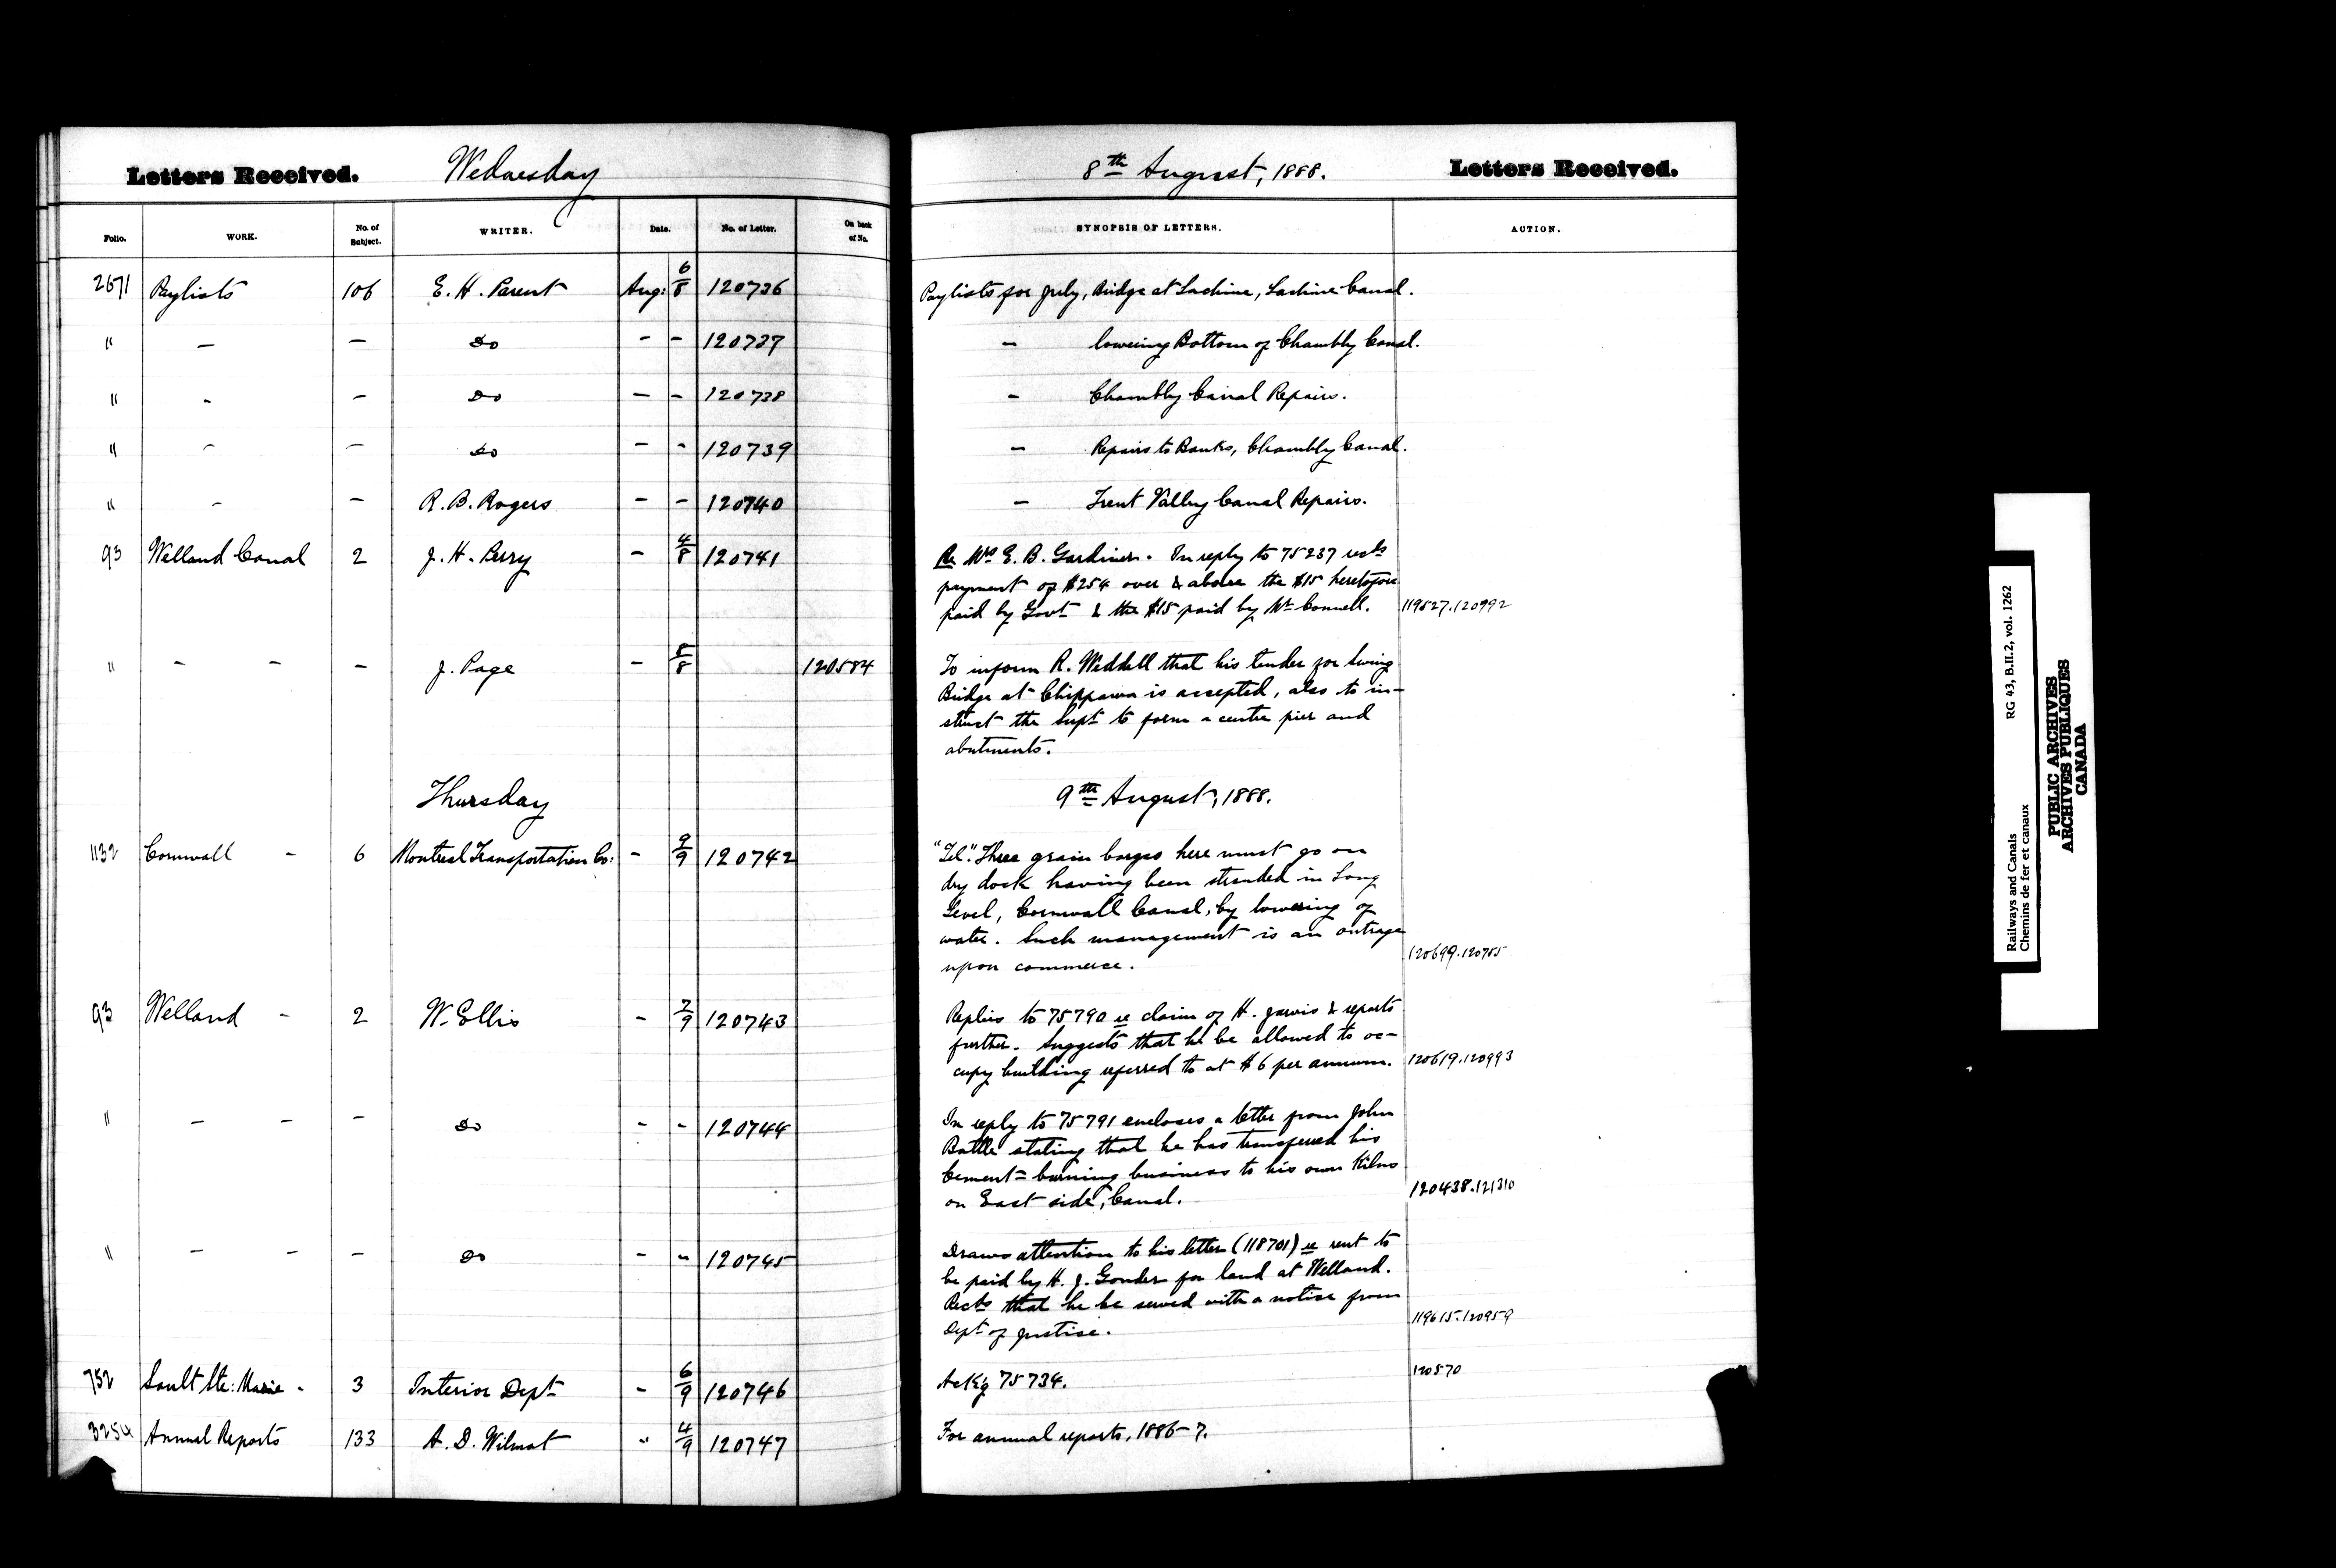 Letters Received. Wednesday 8th August, 1888. Letters Received.
Folio. WORK. No. of Subject. WRITER. Date. No. of Letter. On back of No. SYNOPSIS OF LETTERS. ACTION.
2671 Paylists 106 E. H. Parent Aug: 6/8 120736 Paylists for July, Bridge at Lachine, Lachine Canal.
" — — Do - - 120737 — lowering Bottom of Chambly Canal.
" - — Do — - 120738 - Chambly Canal Repairs.
" - — Do - - 120739 — Repairs to Banks, Chambly Canal.
" - — R. B. Rogers - - 120740 — Trent Valley Canal Repairs.
93 Welland Canal 2 J. H. Perry - 4/8 120741 Re Mrs E. B. Gardiner. In reply to 75237 recds
payment of $254 over & above the $15 heretofore
paid by Govt & the $15 paid by Mr Connell. 119527.120992
" - - - J. Page - 8/8 120584 To inform R. Weddell that his tender for Swing
Bridge at Chippawa is accepted, also to in-
struct the Supt to form a centre pier and
abutments.
Thursday 9th August, 1888.
1132 Cornwall - 6 Montreal Transportation Co: - 9/9 120742 "Tel." Three grain barges here must go on
dry dock having been stranded in Long
Level, Cornwall Canal, by lowering of
water. Such management is an outrage
upon commerce. 120699.120755
93 Welland - 2 W. Ellis - 7/9 120743 Replies to 75790 re claim of H. Jarvis & reports
further. Suggests that he be allowed to oc-
cupy building referred to at $6 per annum. 120619.120993
" - - - Do - - 120744 In reply to 75791 encloses a letter from John
Battle stating that he has transferred his
Cement-burning business to his own Kilns
on East side, Canal. 120438.121310
" - - - Do - " 120745 Draws attention to his letter (118701) re rent to
be paid by H. J. Gonder for land at Welland.
Recds that he be served with a notice from
Dept of Justice. 119615.120959
752 Sault Ste: Marie - 3 Interior Dept - 6/9 120746 Ackg 75734. 120570
3254 Annual Reports 133 A. D. Wilmot " 4/9 120747 For annual reports, 1886-7.
Railways and Canals RG 43, B.II.2, vol. 1262
Chemins de fer et canaux
PUBLIC ARCHIVES
ARCHIVES PUBLIQUES
CANADA